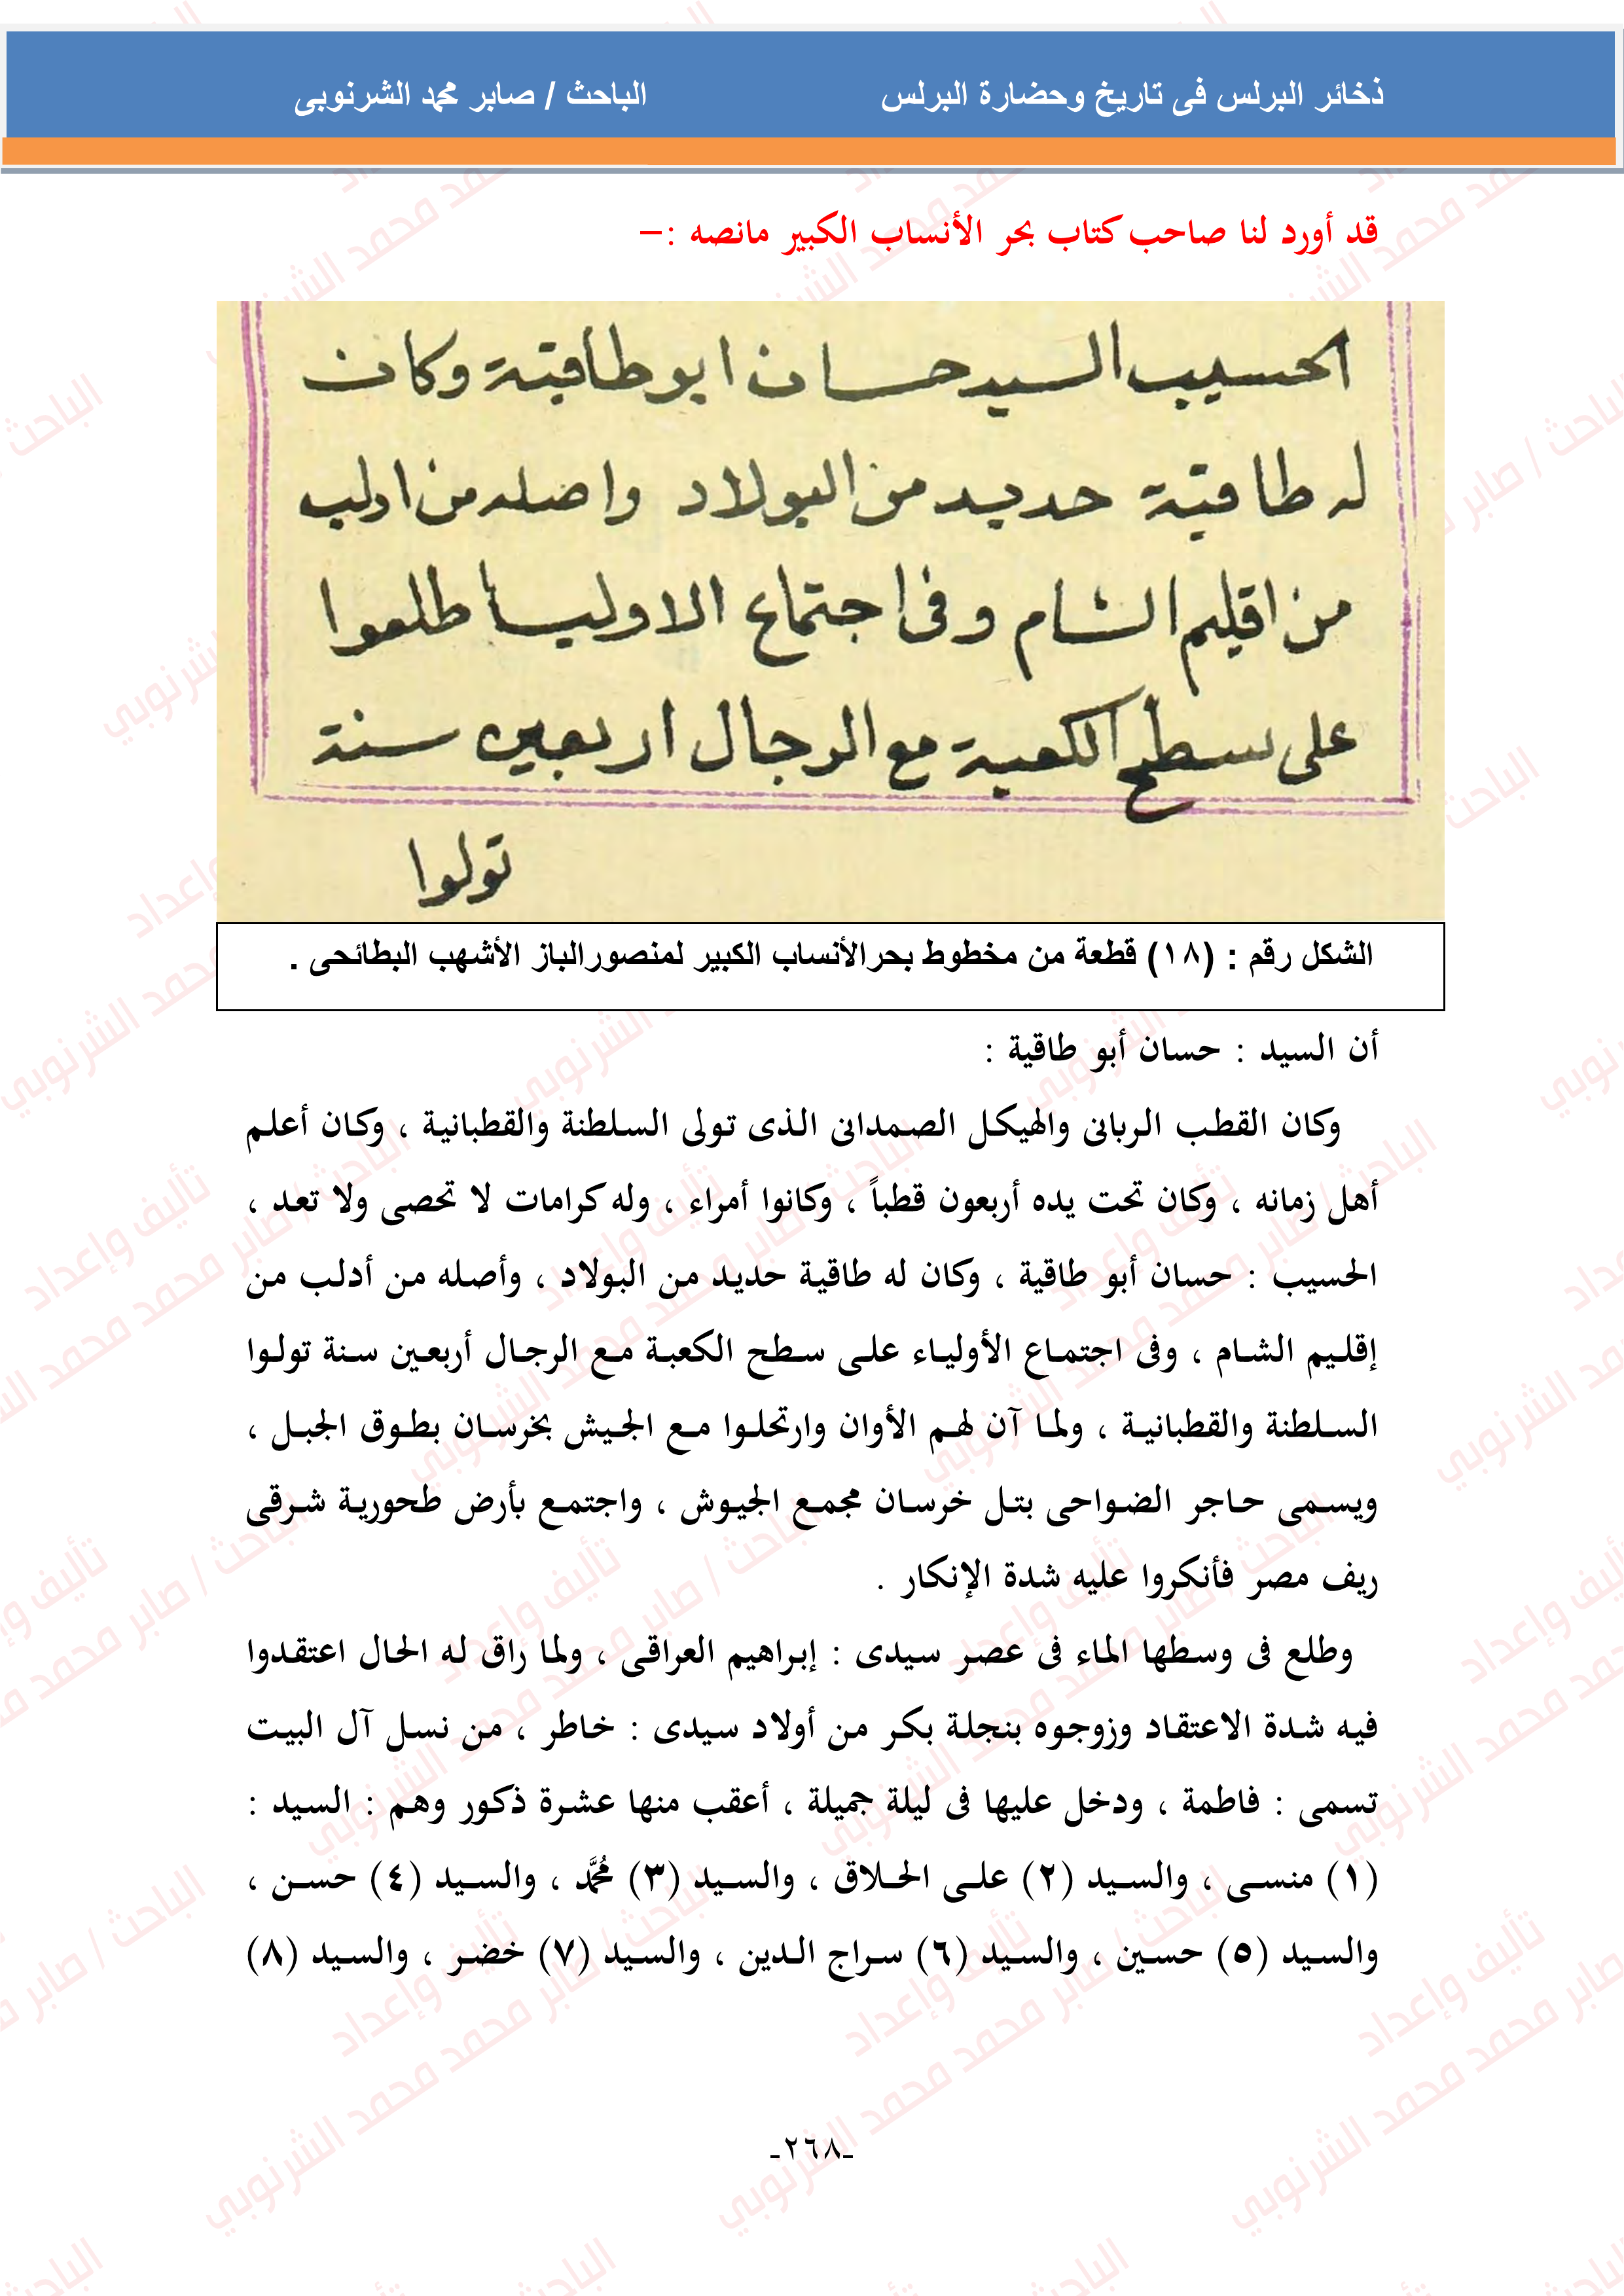 ذخائر البرلس فى تاريخ وحضارة البرلس الباحث / صابر محمد الشرنوبى
قد أورد لنا صاحب كتاب بحر الأنساب الكبير مانصه :–
الحسيب السيد حسان ابو طاقية وكان
له طاقية حديد من البولاد واصله من ادلب
من اقليم الشام وفى اجتماع الاوليا طلعوا
على سطح الكعبة مع الرجال اربعين سنة
تولوا
الشكل رقم : (١٨) قطعة من مخطوط بحرالأنساب الكبير لمنصورالباز الأشهب البطائحى .
أن السيد : حسان أبو طاقية :
وكان القطب الربانى والهيكل الصمدانى الذى تولى السلطنة والقطبانية ، وكان أعلم
أهل زمانه ، وكان تحت يده أربعون قطباً ، وكانوا أمراء ، وله كرامات لا تحصى ولا تعد ،
الحسيب : حسان أبو طاقية ، وكان له طاقية حديد من البولاد ، وأصله من أدلب من
إقليم الشام ، وفى اجتماع الأولياء على سطح الكعبة مع الرجال أربعين سنة تولوا
السلطنة والقطبانية ، ولما آن لهم الأوان وارتحلوا مع الجيش بخرسان بطوق الجبل ،
ويسمى حاجر الضواحى بتل خرسان مجمع الجيوش ، واجتمع بأرض طحورية شرقى
ريف مصر فأنكروا عليه شدة الإنكار .
وطلع فى وسطها الماء فى عصر سيدى : إبراهيم العراقى ، ولما راق له الحال اعتقدوا
فيه شدة الاعتقاد وزوجوه بنجلة بكر من أولاد سيدى : خاطر ، من نسل آل البيت
تسمى : فاطمة ، ودخل عليها فى ليلة جميلة ، أعقب منها عشرة ذكور وهم : السيد :
(١) منسى ، والسيد (٢) على الحلاق ، والسيد (٣) مُحمَّد ، والسيد (٤) حسن ،
والسيد (٥) حسين ، والسيد (٦) سراج الدين ، والسيد (٧) خضر ، والسيد (٨)
-٢٦٨-
تأليف وإعداد
الباحث / صابر محمد محمد الشرنوبي